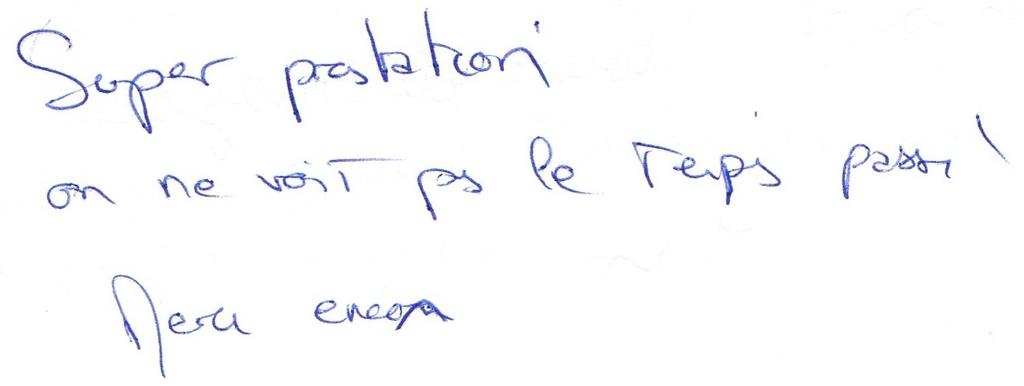 Super prestation
on ne voit pas le temps passer !
Merci encore